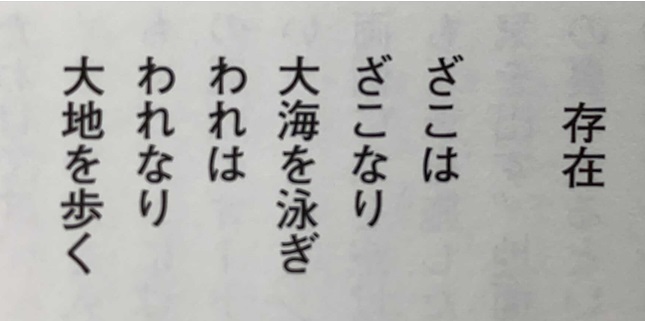 存在
ざこは
ざこなり
大海を泳ぎ
われは
われなり
大地を歩く